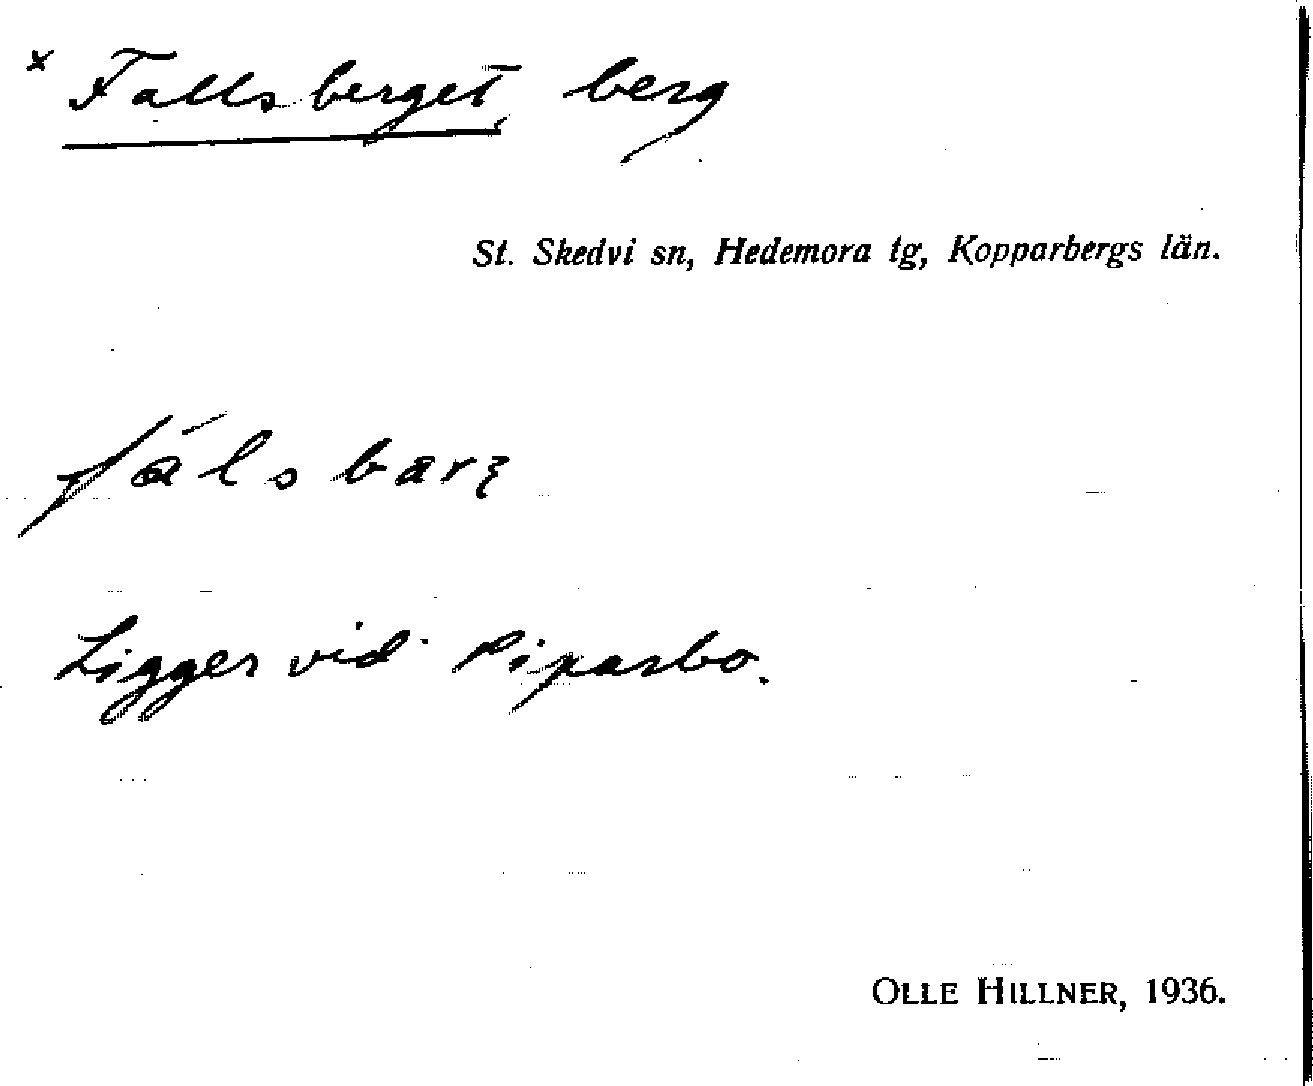 x Fallsberget, berg
St. Skedvi sn, Hedemora tg, Kopparbergs län.
fálsbarʒ
Ligger vid Piparbo.
OLLE HILLNER, 1936.